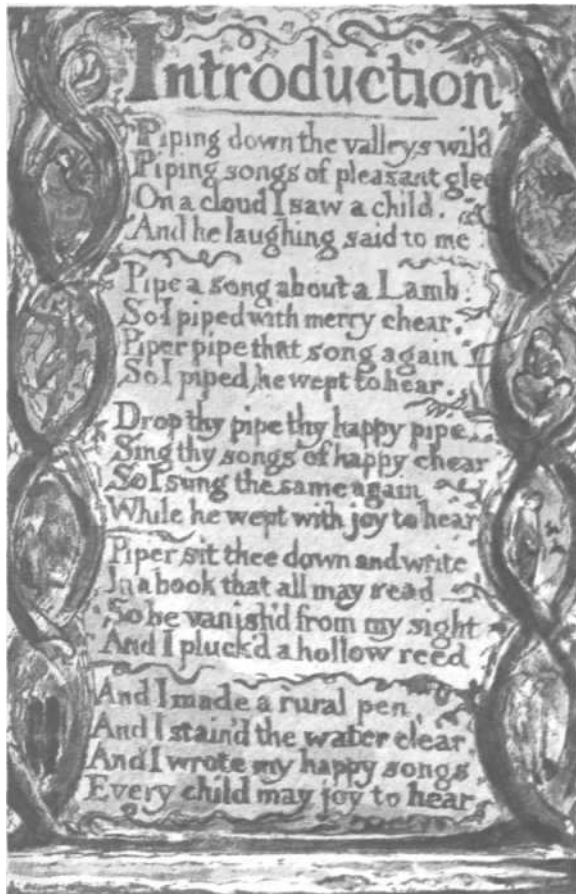 Introduction
Piping down the valleys wild
Piping songs of pleasant glee
On a cloud I saw a child.
And he laughing said to me.

Pipe a song about a Lamb:
So I piped with merry chear,
Piper pipe that song again—
So I piped, he wept to hear.

Drop thy pipe thy happy pipe
Sing thy songs of happy chear
So I sung the same again
While he wept with joy to hear

Piper sit thee down and write
In a book that all may read—
So he vanish'd from my sight
And I pluck'd a hollow reed

And I made a rural pen,
And I stain'd the water clear,
And I wrote my happy songs
Every child may joy to hear